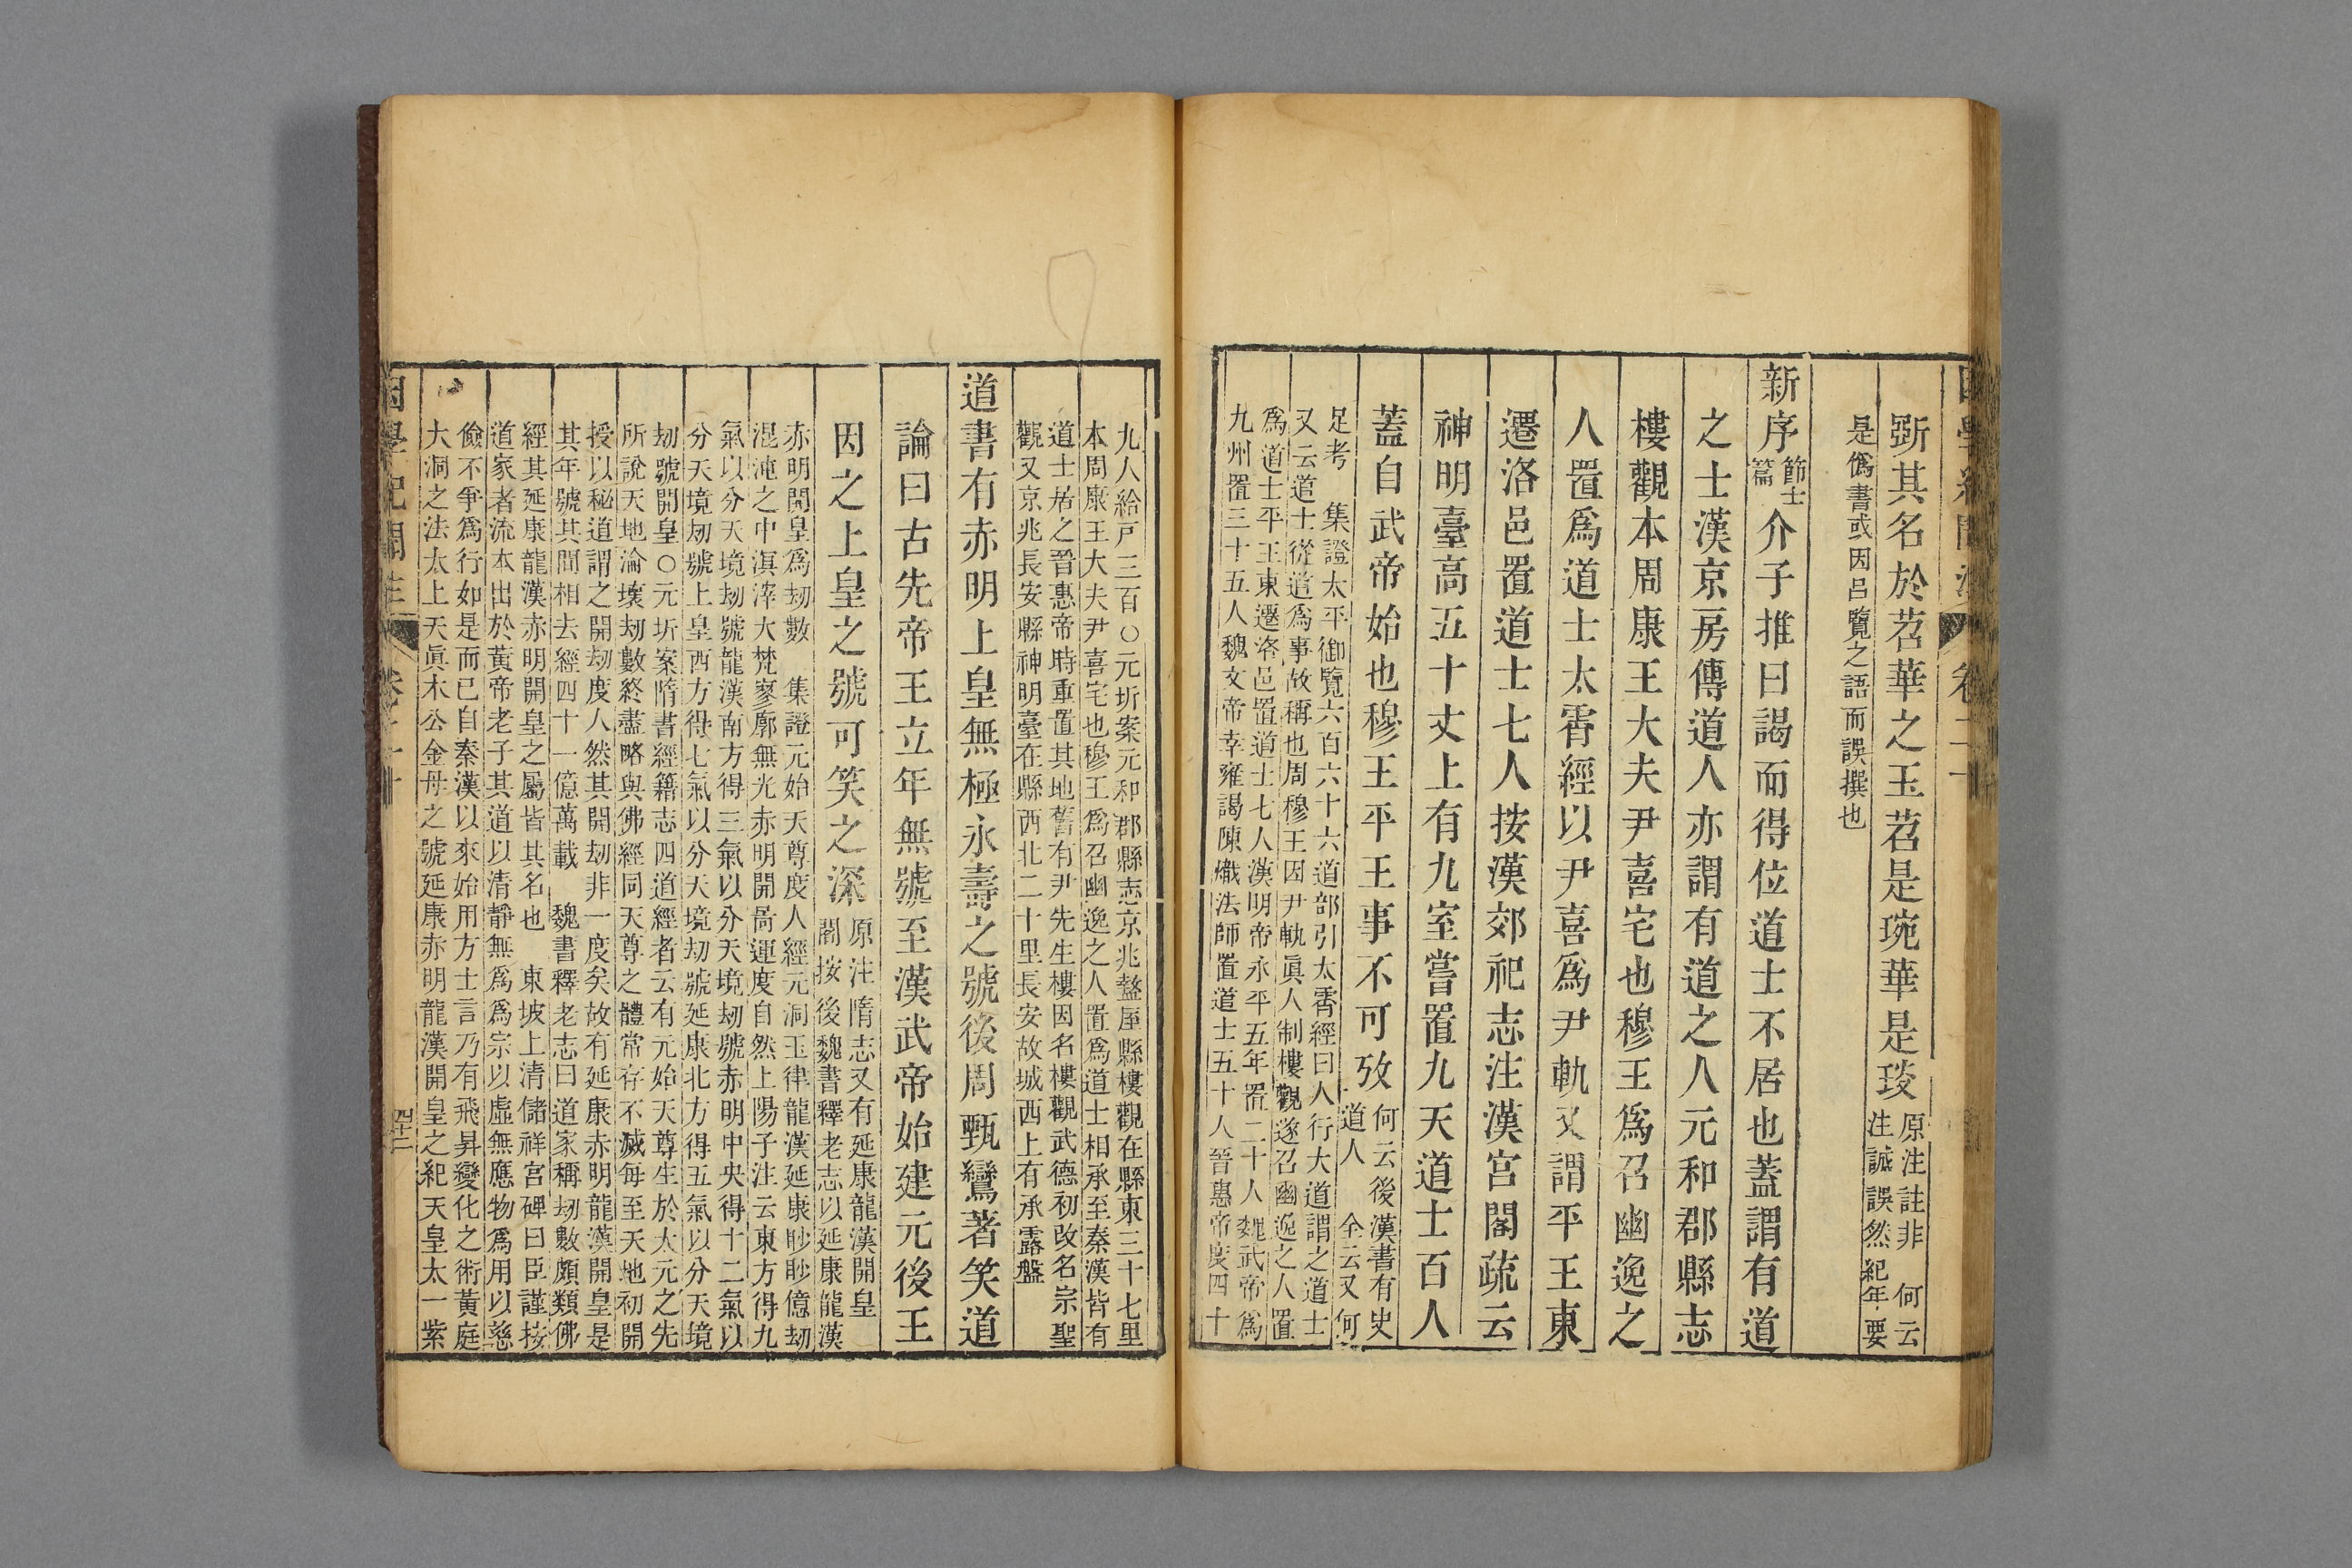 斲其名於苕華之玉苕是琬華是琰
原注註非　何云
注誠誤然紀年要
是僞書或因呂覽之語而誤撰也
新序
節士
篇
介子推曰謁而得位道士不居也蓋謂有道
之士漢京房傳道人亦謂有道之人元和郡縣志
樓觀本周康王大夫尹喜宅也穆王爲召幽逸之
人置爲道士太霄經以尹喜爲尹軌又謂平王東
遷洛邑置道士七人按漢郊祀志注漢宮閣疏云
神明臺高五十丈上有九室嘗置九天道士百人
蓋自武帝始也穆王平王事不可攷
何云後漢書有史
道人　全云又何
足考　集證太平御覽六百六十六道部引太霄經曰人行大道謂之道士
又云道士從道爲事故稱也周穆王因尹軌眞人制樓觀遂召幽逸之人置
爲道士平王東遷洛邑置道士七人漢明帝永平五年置二十人魏武帝爲
九州置三十五人魏文帝幸雍謁陳熾法師置道士五十人晉惠帝度四十
九人給戸三百○元圻案元和郡縣志京兆盩厔縣樓觀在縣東三十七里
本周康王大夫尹喜宅也穆王爲召幽逸之人置爲道士相承至秦漢皆有
道士居之晉惠帝時重置其地舊有尹先生樓因名樓觀武德初改名宗聖
觀又京兆長安縣神明臺在縣西北二十里長安故城西上有承露盤
道書有赤明上皇無極永壽之號後周甄鸞著笑道
論曰古先帝王立年無號至漢武帝始建元後王
因之上皇之號可笑之深
原注隋志又有延康龍漢開皇
閻按後魏書釋老志以延康龍漢
赤明開皇爲劫數　集證元始天尊度人經元洞玉律龍漢延康眇眇億劫
混沌之中溟涬大梵寥廓無光赤明開啚運度自然上陽子注云東方得九
氣以分天境劫號龍漢南方得三氣以分天境劫號赤明中央得十二氣以
分天境劫號上皇西方得七氣以分天境劫號延康北方得五氣以分天境
劫號開皇○元圻案隋書經籍志四道經者云有元始天尊生於太元之先
所說天地淪壞劫數終盡略與佛經同天尊之體常存不滅每至天地初開
授以秘道謂之開劫度人然其開劫非一度矣故有延康赤明龍漢開皇是
其年號其間相去經四十一億萬載　魏書釋老志曰道家稱劫數頗類佛
經其延康龍漢赤明開皇之屬皆其名也　東坡上清儲祥宮碑曰臣謹按
道家者流本出於黃帝老子其道以清靜無爲爲宗以虛無應物爲用以慈
儉不爭爲行如是而已自秦漢以來始用方士言乃有飛昇變化之術黃庭
大洞之法太上天眞木公金母之號延康赤明龍漢開皇之紀天皇太一紫
困學紀聞注　卷二十